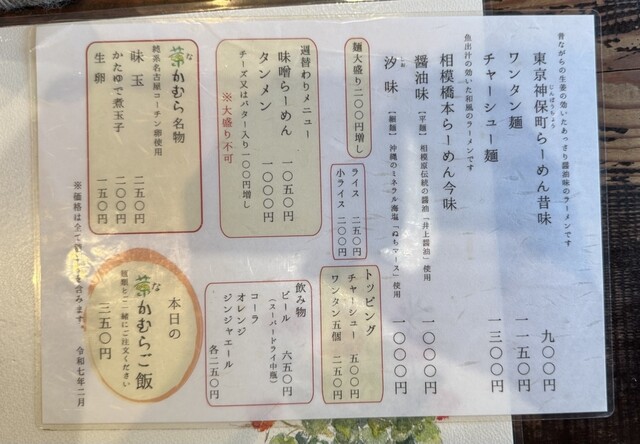 昔ながらの生姜の効いたあっさり醤油味のラーメンです
東京神保町らーめん昔味　九〇〇円
じんぼうちょう
ワンタン麺　一一五〇円
チャーシュー麺　一三〇〇円
魚出汁の効いた和風のラーメンです
相模橋本らーめん今味
醤油味【平麺】相模原伝統の醤油「井上醤油」使用　一〇〇〇円
汐味【細麺】沖縄のミネラル海塩「ぬちマース」使用　一〇〇〇円
しお
麺大盛り二〇〇円増し
ライス　二五〇円
小ライス　二〇〇円
トッピング
チャーシュー　五〇〇円
ワンタン五個　二五〇円
週替わりメニュー
味噌らーめん　一〇五〇円
タンメン　一〇〇〇円
チーズ又はバター入り一〇〇円増し
※大盛り不可
飲み物
ビール　六五〇円
（スーパードライ中瓶）
コーラ
オレンジ
ジンジャエール　各二五〇円
な
菜かむら名物
純系名古屋コーチン卵使用
味玉　二五〇円
かたゆで煮玉子　二〇〇円
生卵　一五〇円
本日の
な
菜かむらご飯
拉麺とご一緒にご注文ください
三五〇円
※価格は全て
含みます。　令和七年二月